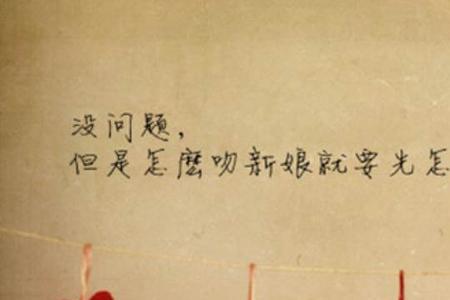 没问题,
但是怎麽吻新娘就要光怎